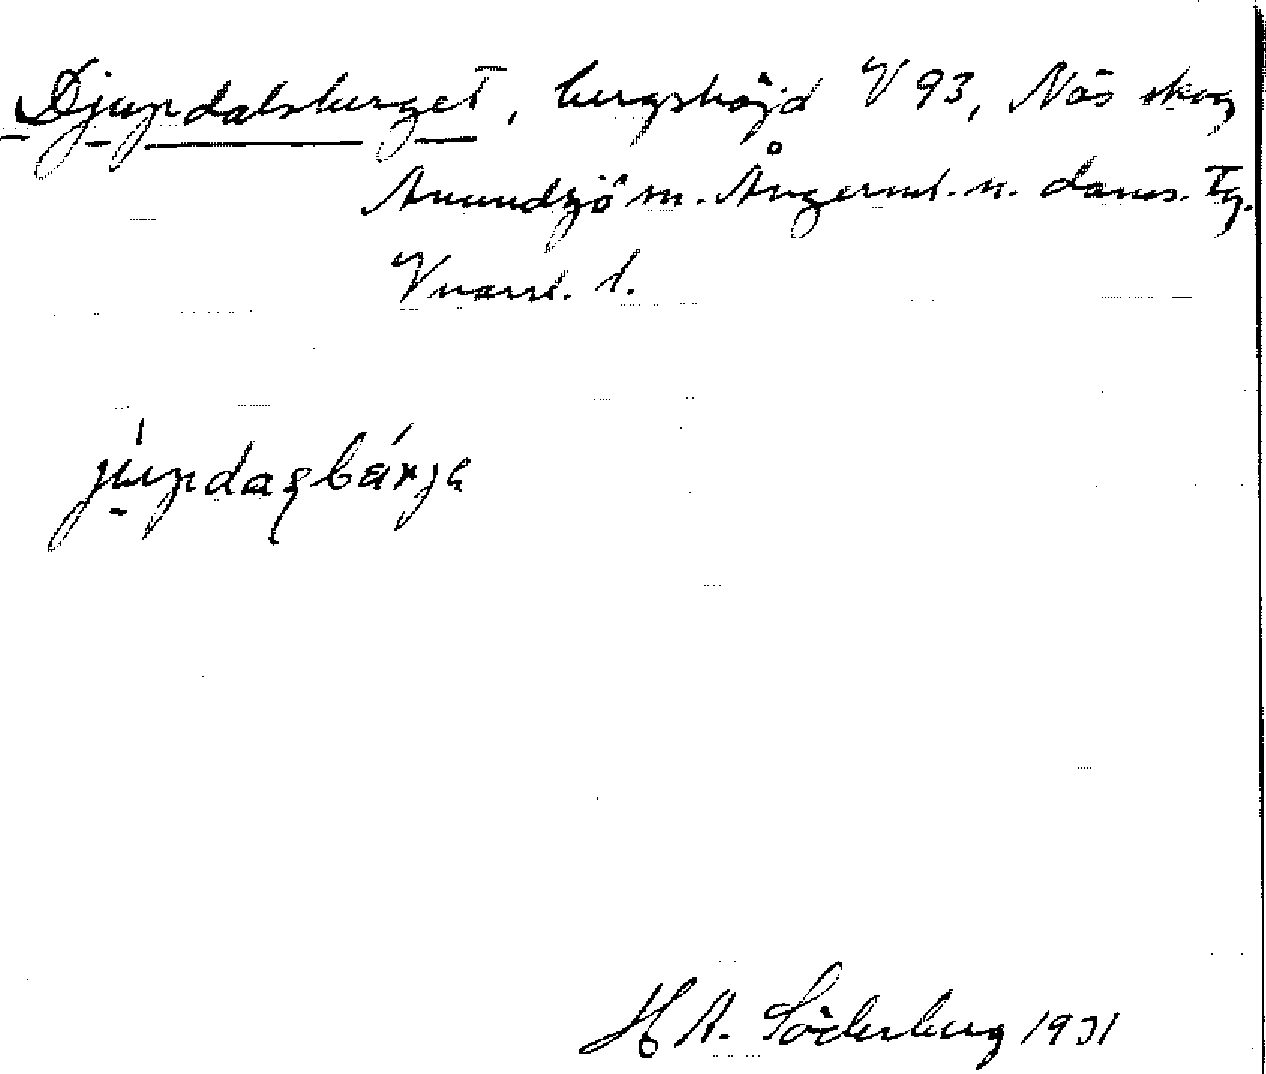 Djupdalsberget, bergshöjd V 93, Näs skog
Anundsjö sn. Ångerml. n. doms. Tg.
Vnorrl. l.
júpdaʂbárjə
H A. Söderberg 1931